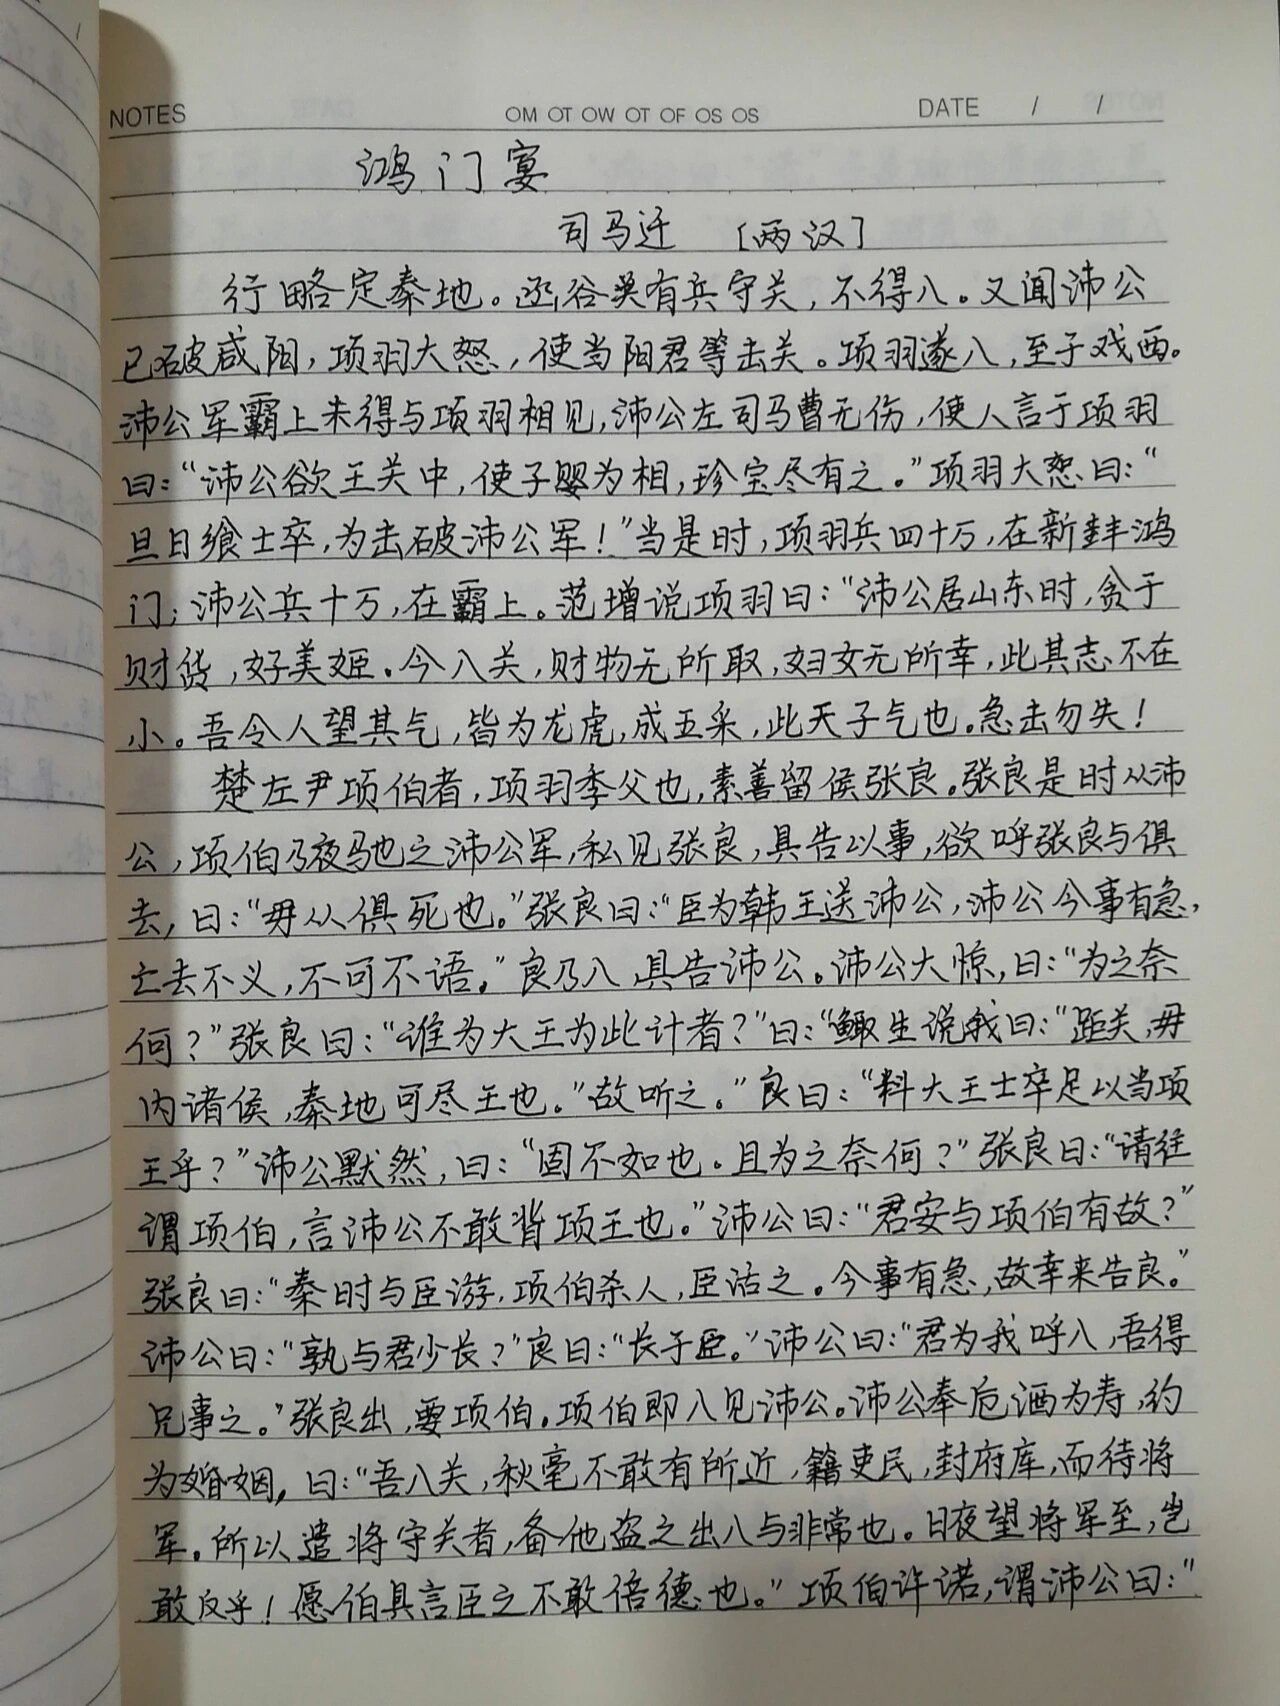 NOTES OM OT OW OT OF OS OS DATE / /
鸿门宴
司马迁 [两汉]
行略定秦地。函谷关有兵守关,不得入。又闻沛公
已破咸阳,项羽大怒,使当阳君等击关。项羽遂入,至于戏西。
沛公军霸上未得与项羽相见,沛公左司马曹无伤,使人言于项羽
曰:“沛公欲王关中,使子婴为相,珍宝尽有之。”项羽大怒曰:“
旦日飨士卒,为击破沛公军!”当是时,项羽兵四十万,在新丰鸿
门;沛公兵十万,在霸上。范增说项羽曰:“沛公居山东时,贪于
财货,好美姬。今入关,财物无所取,妇女无所幸,此其志不在
小。吾令人望其气,皆为龙虎,成五采,此天子气也。急击勿失!
楚左尹项伯者,项羽季父也,素善留侯张良。张良是时从沛
公,项伯乃夜驰之沛公军,私见张良,具告以事,欲呼张良与俱
去,曰:“毋从俱死也。”张良曰:“臣为韩王送沛公,沛公今事有急,
亡去不义,不可不语。”良乃入,具告沛公。沛公大惊,曰:“为之奈
何?”张良曰:“谁为大王为此计者?”曰:“鲰生说我曰:“距关,毋
内诸侯,秦地可尽王也。”故听之。”良曰:“料大王士卒足以当项
王乎?”沛公默然,曰:“固不如也。且为之奈何?”张良曰:“请往
谓项伯,言沛公不敢背项王也。”沛公曰:“君安与项伯有故?”
张良曰:“秦时与臣游,项伯杀人,臣活之。今事有急,故幸来告良。”
沛公曰:“孰与君少长?”良曰:“长于臣。”沛公曰:“君为我呼入,吾得
兄事之。”张良出,要项伯。项伯即入见沛公。沛公奉卮酒为寿,约
为婚姻,曰:“吾入关,秋毫不敢有所近,籍吏民,封府库,而待将
军。所以遣将守关者,备他盗之出入与非常也。日夜望将军至,岂
敢反乎!愿伯具言臣之不敢倍德也。”项伯许诺,谓沛公曰:“